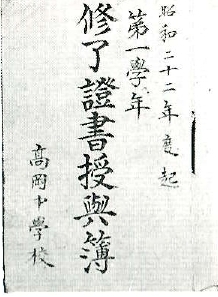 昭和二十二年度起
第一學年
修了證書授與簿
高岡中学校